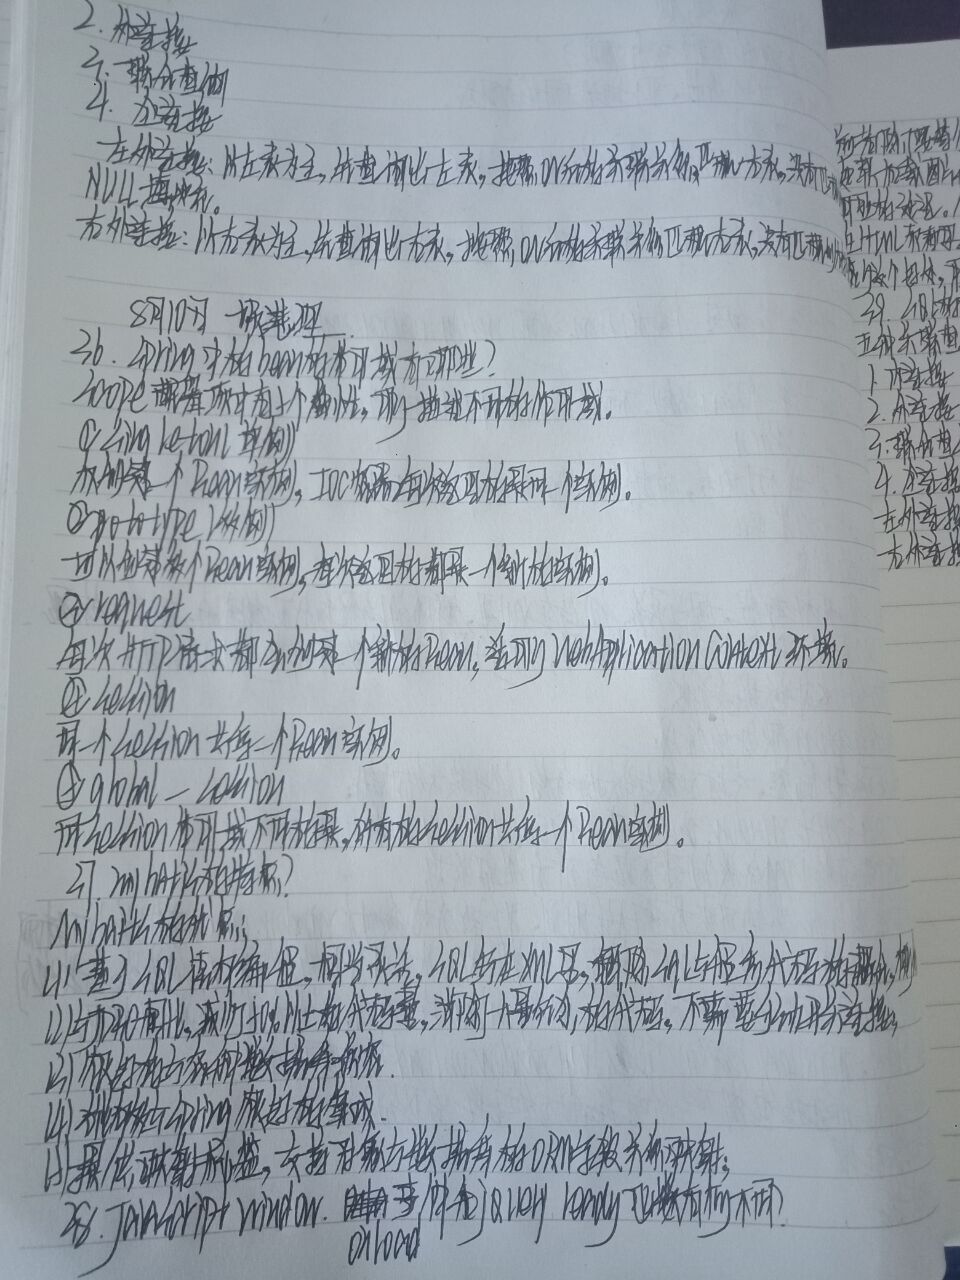 2. 外连接
3. 联合查询
4. 全连接
左外连接：以左表为主，先查询出左表，按照ON后的关联条件匹配右表，没有匹配
NULL填充。
右外连接：以右表为主，先查询出右表，按照ON后的关联条件匹配左表，没有匹配
8月10号
26. Spring中的bean的作用域有哪些？
scope 中有5个属性，用于描述不同的作用域。
① singleton（单例）
仅创建一个Bean实例，IOC容器每次返回的是同一个实例。
② prototype（多例）
可以创建多个Bean实例，每次返回的都是一个新的实例。
③ request
每次HTTP请求都会创建一个新的Bean，适用WebApplicationContext环境。
④ session
同一个session共享一个Bean实例。
⑤ global-session
同session作用域不同的是，所有的session共享一个Bean实例。
27. mybatis的优点？
Mybatis的优点：
(1) 基于SQL语句编程，相当灵活，SQL写在XML里，解除SQL与程序代码的耦合，
(2) 与JDBC相比，减少了50%以上的代码量，消除了大量冗余的代码，不需要手动开关连接；
(3) 很好的与各种数据库兼容
(4) 能够与Spring很好的集成
(5) 提供映射标签，支持对象与数据库的ORM字段关系映射；
28. JavaScript window. 于 jQuery ready 函数有何不同？
onload
29. SQL
五种关联查
1. 内连接
2. 外连接
3. 联合查
4. 全连接
左外连接
右外连接